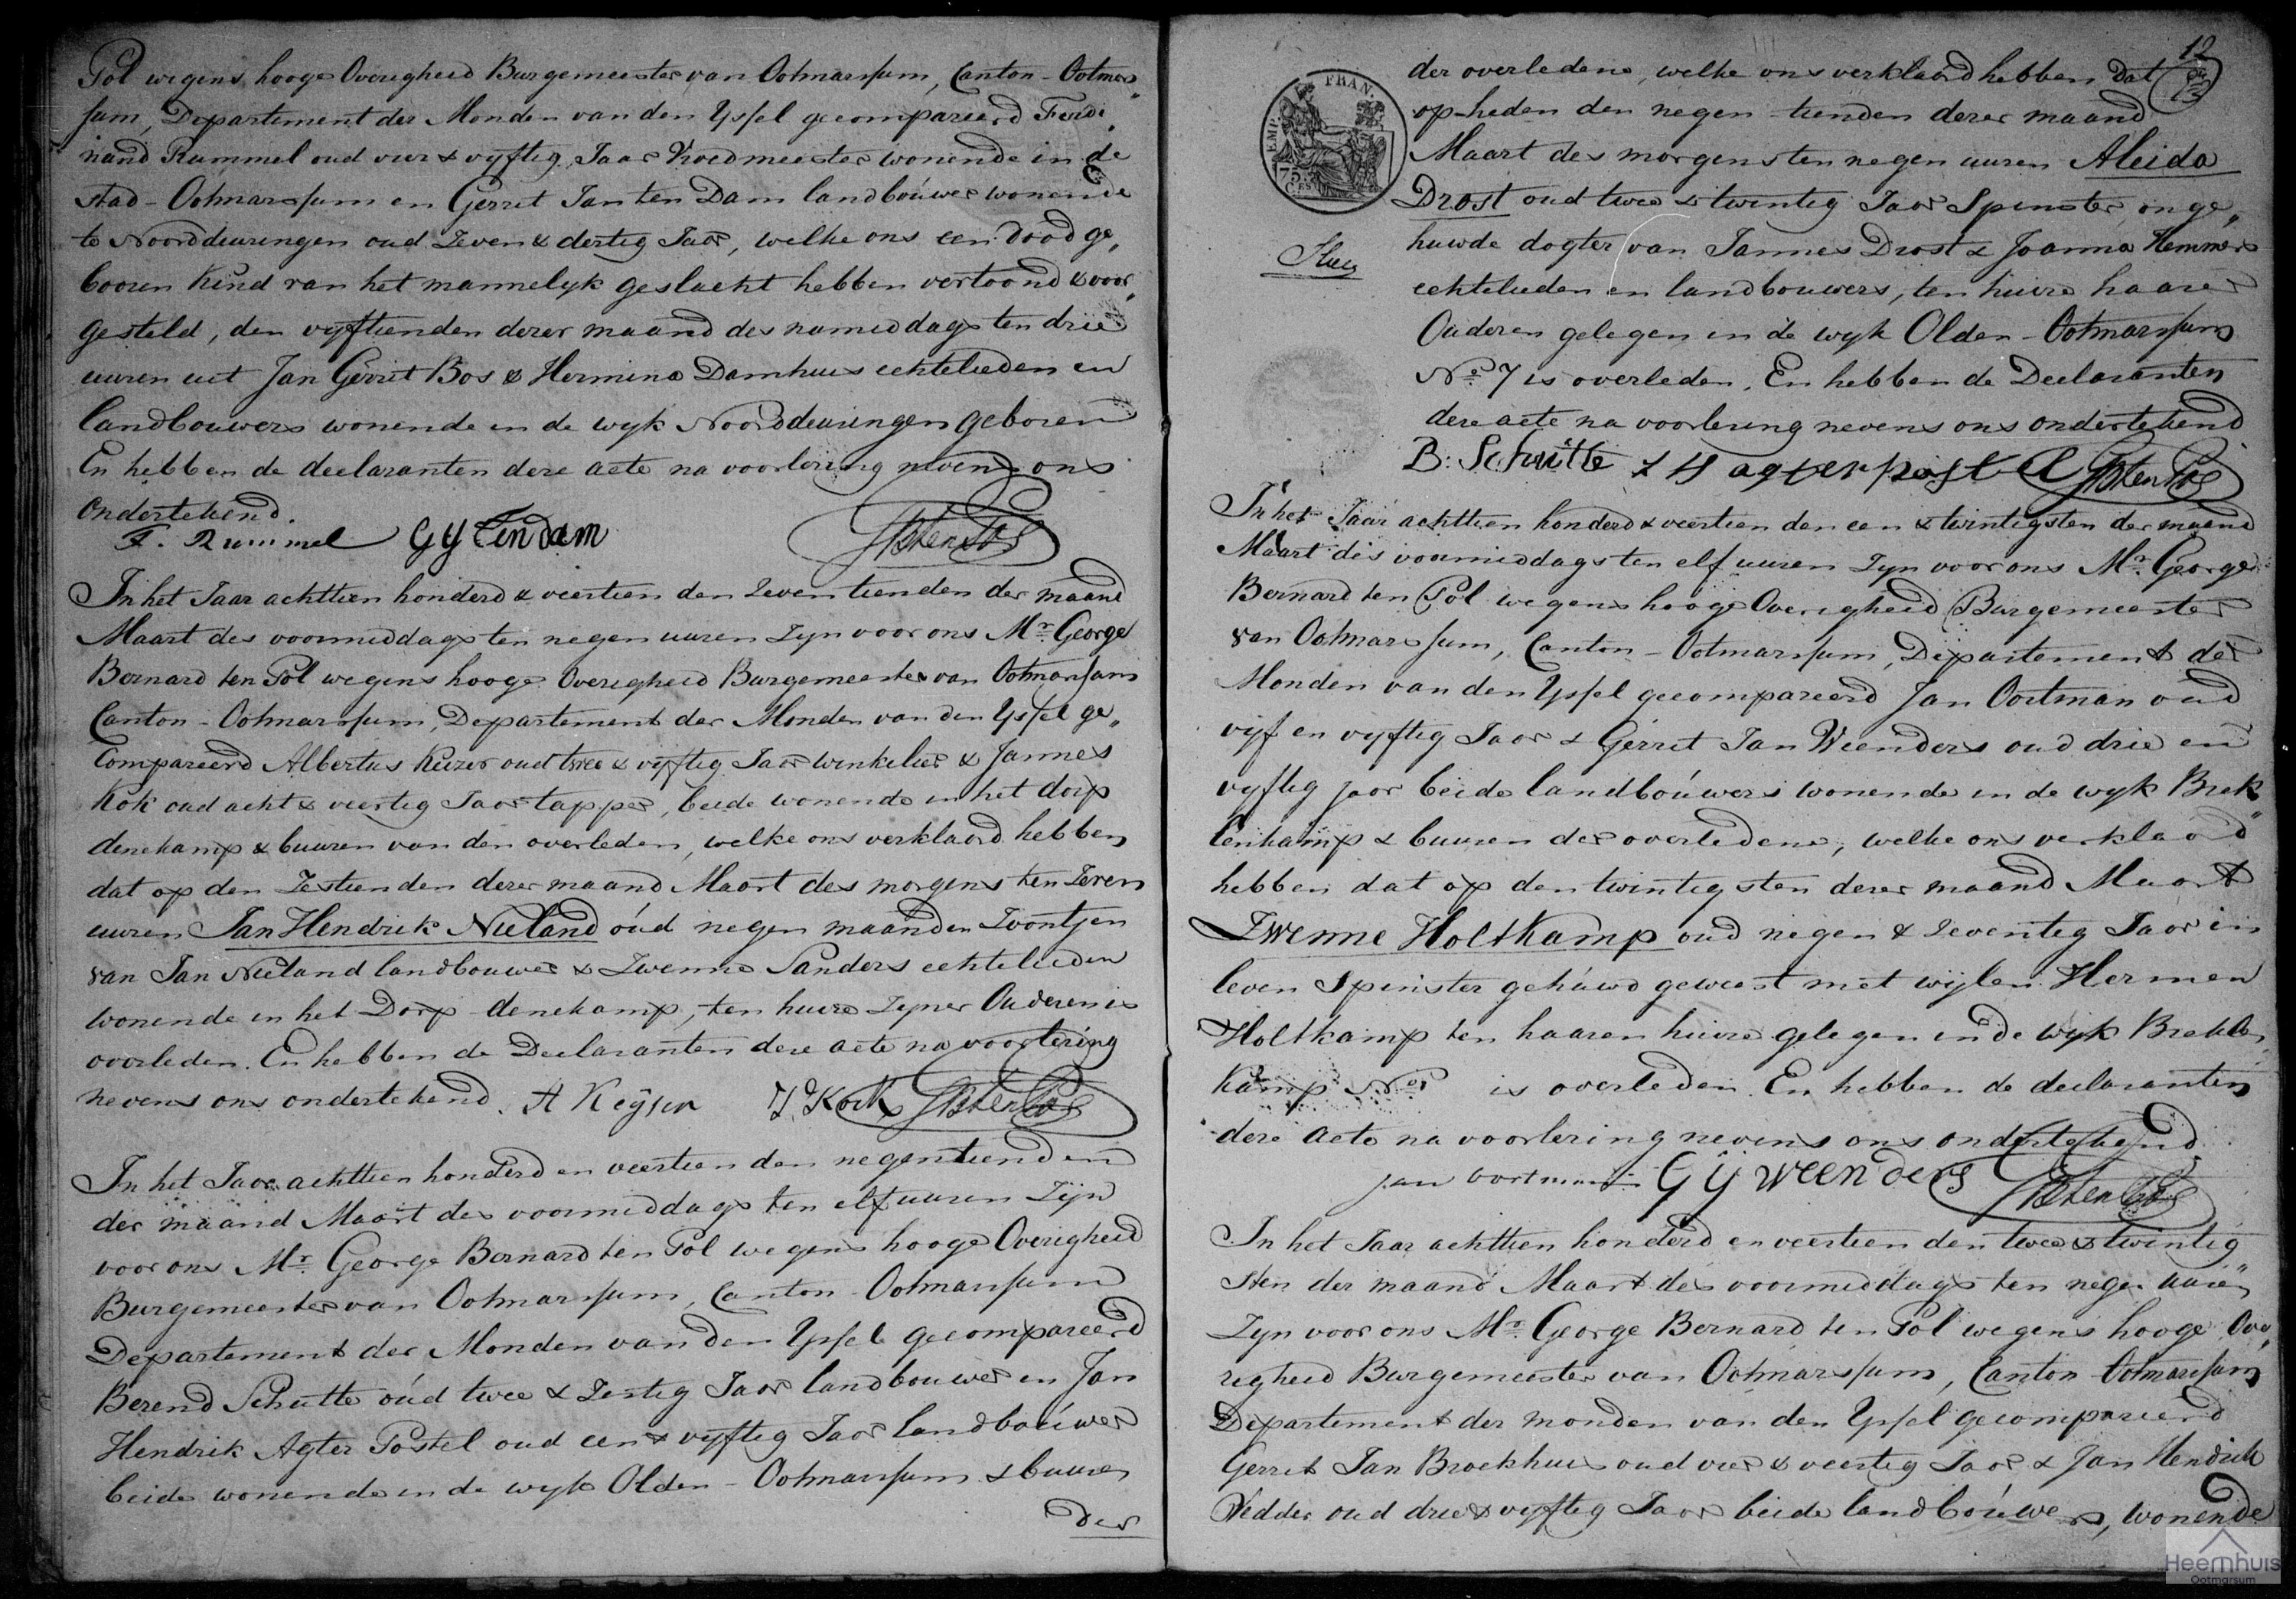 Pol wegens hooge Overigheid Burgemeester van Ootmarssum, Canton-Ootmars„
sum, Departement der Monden van den Yssel gecompareerd Ferdi„
nand Rummel oud vier & vyftig Jaar Vroedmeester wonende in de
stad-Ootmarssum en Gerret Jan ten Dam landbouwer wonende
te Noorddeuringen oud Zeven & dertig Jaar, welke ons een dood ge„
booren Kind van het mannelyk geslacht hebben vertoond & voor„
gesteld, den vyftienden dezer maand des namiddags ten drie
uuren uit Jan Gerrit Bos & Hermina Damhuis echtelieden en
landbouwers wonende in de wyk Noorddeuringen geboren
En hebben de declaranten deze acte na voorlezing nevens ons
Ondertekend.
F. Rummel GJ tendam GBtenPol
In het Jaar achttien honderd & veertien den Zeventienden der maand
Maart des voormiddags ten negen uuren Zyn voor ons Mr. George
Bernard ten Pol wegens hooge Overigheid Burgemeester van Ootmarssum
Canton-Ootmarssum, Departement der Monden van den Yssel ge„
Compareerd Albertus Keizer oud twee & vyftig Jaar winkelier & Jannes
Kok oud acht & veertig Jaar tapper, beide wonende in het dorp
denekamp & buuren van den overleden, welke ons verklaard hebben
dat op den Zestienden dezer maand Maart des morgens ten Zeven
uuren Jan Hendrik Nieland oud negen maanden Zoontjen
van Jan Nieland landbouwer & Zwenne Sanders echtelieden
wonende in het Dorp denekamp, ten huize Zyner Ouderen is
overleden. En hebben de Declaranten deze acte na voorlezing
nevens ons ondertekend. A Keyser J. Kock GBtenPol
In het Jaar achttien honderd en veertien den negentienden
der maand Maart des voormiddags ten elf uuren Zyn
voor ons Mr. George Bernard ten Pol wegens hooge Overigheid
Burgemeester van Ootmarssum, Canton Ootmarssum
Departement der Monden van den Yssel gecompareerd
Berend Schutte oud twee & Zestig Jaar landbouwer en Jan
Hendrik Agter Postel oud een & vyftig Jaar landbouwer
beide wonende in de wyk Olden-Ootmarssum & buuren
der
12
EMP. FRAN.
75
der overledene, welke ons verklaard hebben dat
op heden den negentienden dezer maand
Maart des morgens ten negen uuren Aleida
Drost oud twee & twintig Jaar Spinster, onge„
huwde dogter van Jannes Drost & Joanna Hemmers
echtelieden en landbouwers, ten huize haarer
Ouderen gelegen in de wyk Olden-Ootmarssum
No. 7 is overleden. En hebben de Declaranten
deze acte na voorlezing nevens ons ondertekend
B: Schutte J H agterpostel GBtenPol
In het Jaar achttien honderd & veertien den een & twintigsten der maand
Maart des voormiddags ten elf uuren Zyn voor ons Mr. George
Bernard ten Pol wegens hooge Overigheid Burgemeester
van Ootmarssum, Canton-Ootmarssum, Departement der
Monden van den Yssel gecompareerd Jan Oortman oud
vyf en vyftig Jaar & Gerret Jan Weenders oud drie en
vyftig jaar beide landbouwers wonende in de wyk Brek„
lenkamp & buuren der overledene, welke ons verklaard
hebben dat op den twintigsten dezer maand Maart
Zwenne Holtkamp oud negen & Zeventig Jaar in
leven Spinster gehuwd geweest met wijlen Hermen
Holtkamp ten haaren huize gelegen in de wyk Breklen
Kamp No. is overleden. En hebben de declaranten
deze acte na voorlezing nevens ons ondertekend
jan oortman GJ weenders GBtenPol
In het Jaar achttien honderd en veertien den twee & twintig„
sten der maand Maart des voormiddags ten negen uuren
Zyn voor ons Mr. George Bernard ten Pol wegens hooge Ove„
righeid Burgemeester van Ootmarssum, Canton-Ootmarssum
Departement der Monden van den Yssel gecompareerd
Gerret Jan Broekhuis oud vier & veertig Jaar & Jan Hendrik
Vedder oud drie & vyftig Jaar beide landbouwers, wonende
Heemhuis
Ootmarsum